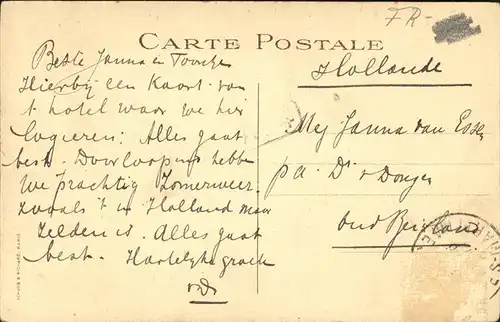 FR-
CARTE POSTALE
Beste Janna en Toosje
Hierbij een Kaart van
't hotel waar we hier
logieren: Alles gaat
best. Doorloopend hebben
we prachtig Zomerweer.
zooals 't in Holland maar
zelden is. Alles gaat
best. Hartelijke groete
Hollande
Mej Janna van Essen
p/a Ds v Dongen
Oud Beijerland